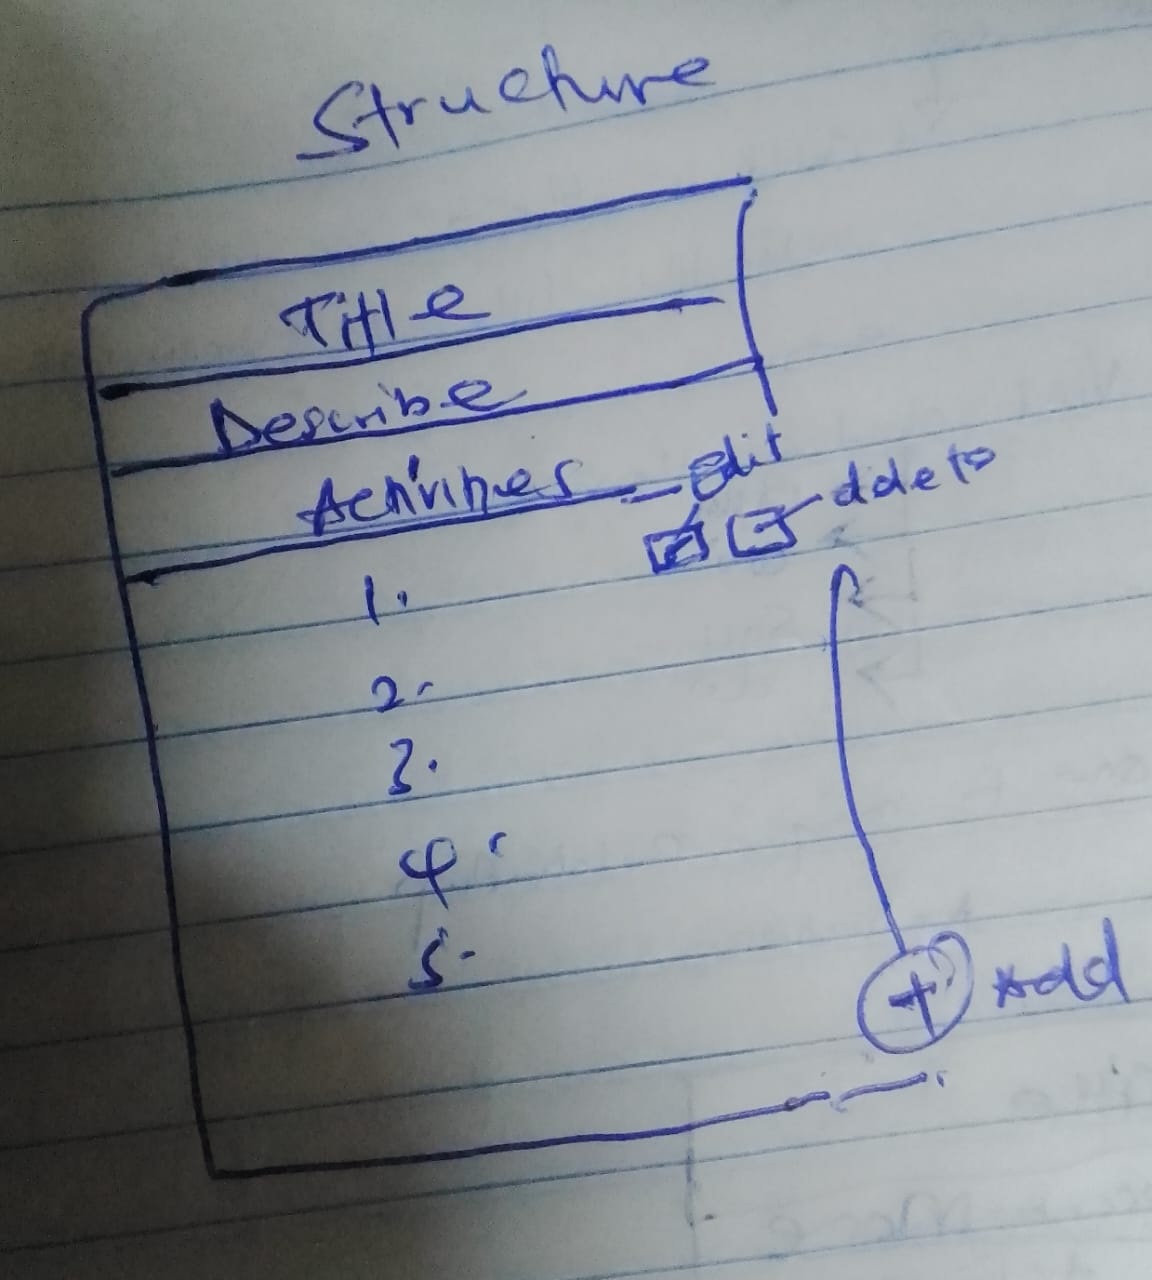 Structure
Title
Describe
Activities edit
delete
1.
2.
3.
4.
5.
+ Add